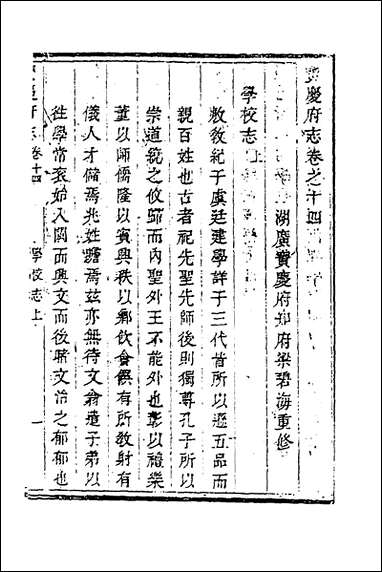 寶慶府志卷之十四
湖廣寶慶府知府梁碧海重修
學校志上
敷教紀于虞廷建學詳于三代皆所以遜五品而
親百姓也古者祀先聖先師後則獨尊孔子所以
崇道統之攸歸而內聖外王不能外也彰以禮樂
董以師儒隆以賓興秩以鄉飲食餼有所教射有
儀人才儲焉兆姓覩焉茲亦無待文翁遣子弟以
徃學常袞始入閩而興文而後睹文治之郁郁也
府志 卷十四 學校志上 一